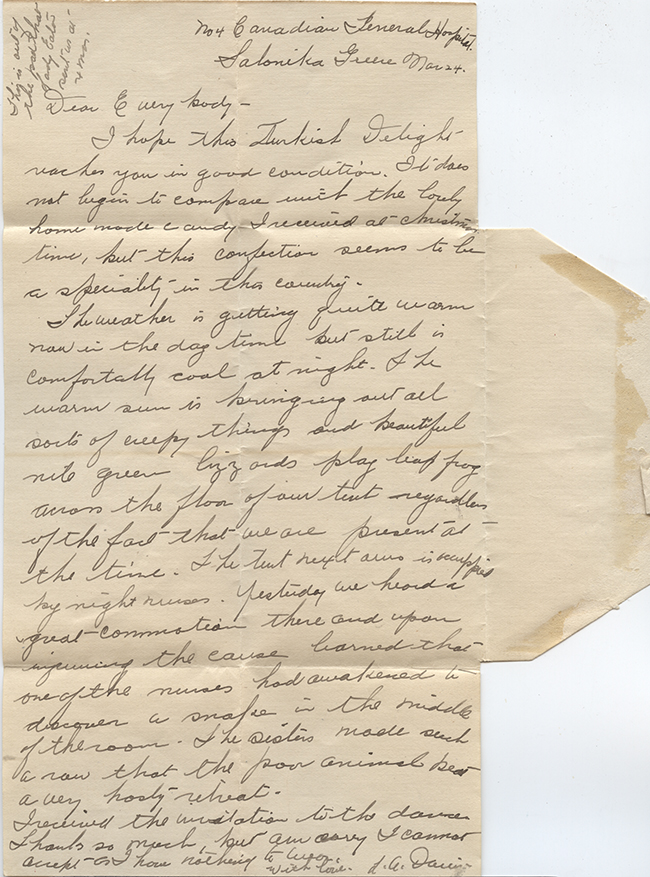 This is out of
the pad that
Lady Eaton
sent us at
Xmas.
No 4 Canadian General Hospital.
Salonika Greece Mar 24.
Dear Everybody -
I hope this Turkish Delight
reaches you in good condition. It does
not begin to compare with the lovely
home made candy I received at Christmas
time, but this confection seems to be
a speciality in this country.
The weather is getting quite warm
now in the day time but still is
comfortably cool at night. The
warm sun is bringing out all
sorts of creepy things and beautiful
nile green lizzards play leap frog
across the floor of our tent regardless
of the fact that we are present at
the time. The tent next ours is occupied
by night nurses. Yesterday we heard a
great commotion there and upon
inquiring the cause learned that
one of the nurses had awakened to
discover a snake in the middle
of the room. The sisters made such
a row that the poor animal beat
a very hasty retreat.
I received the invitation to the dance
Thanks so much, but am sorry I cannot
accept as I have nothing to wear.
With love. A.A.